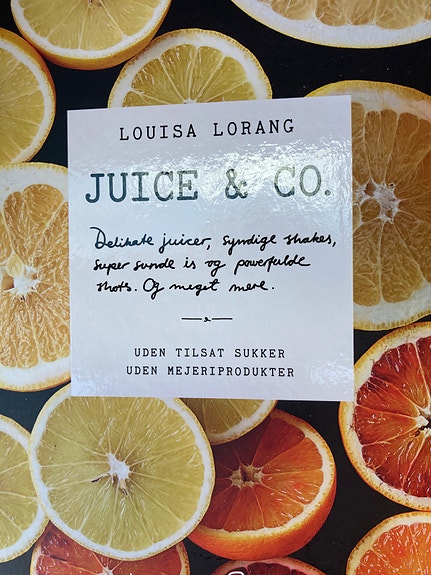 LOUISA LORANG
JUICE & CO.
Delikate juicer, syndige shakes,
super sunde is og powerfulde
shots. Og meget mere.
UDEN TILSAT SUKKER
UDEN MEJERIPRODUKTER